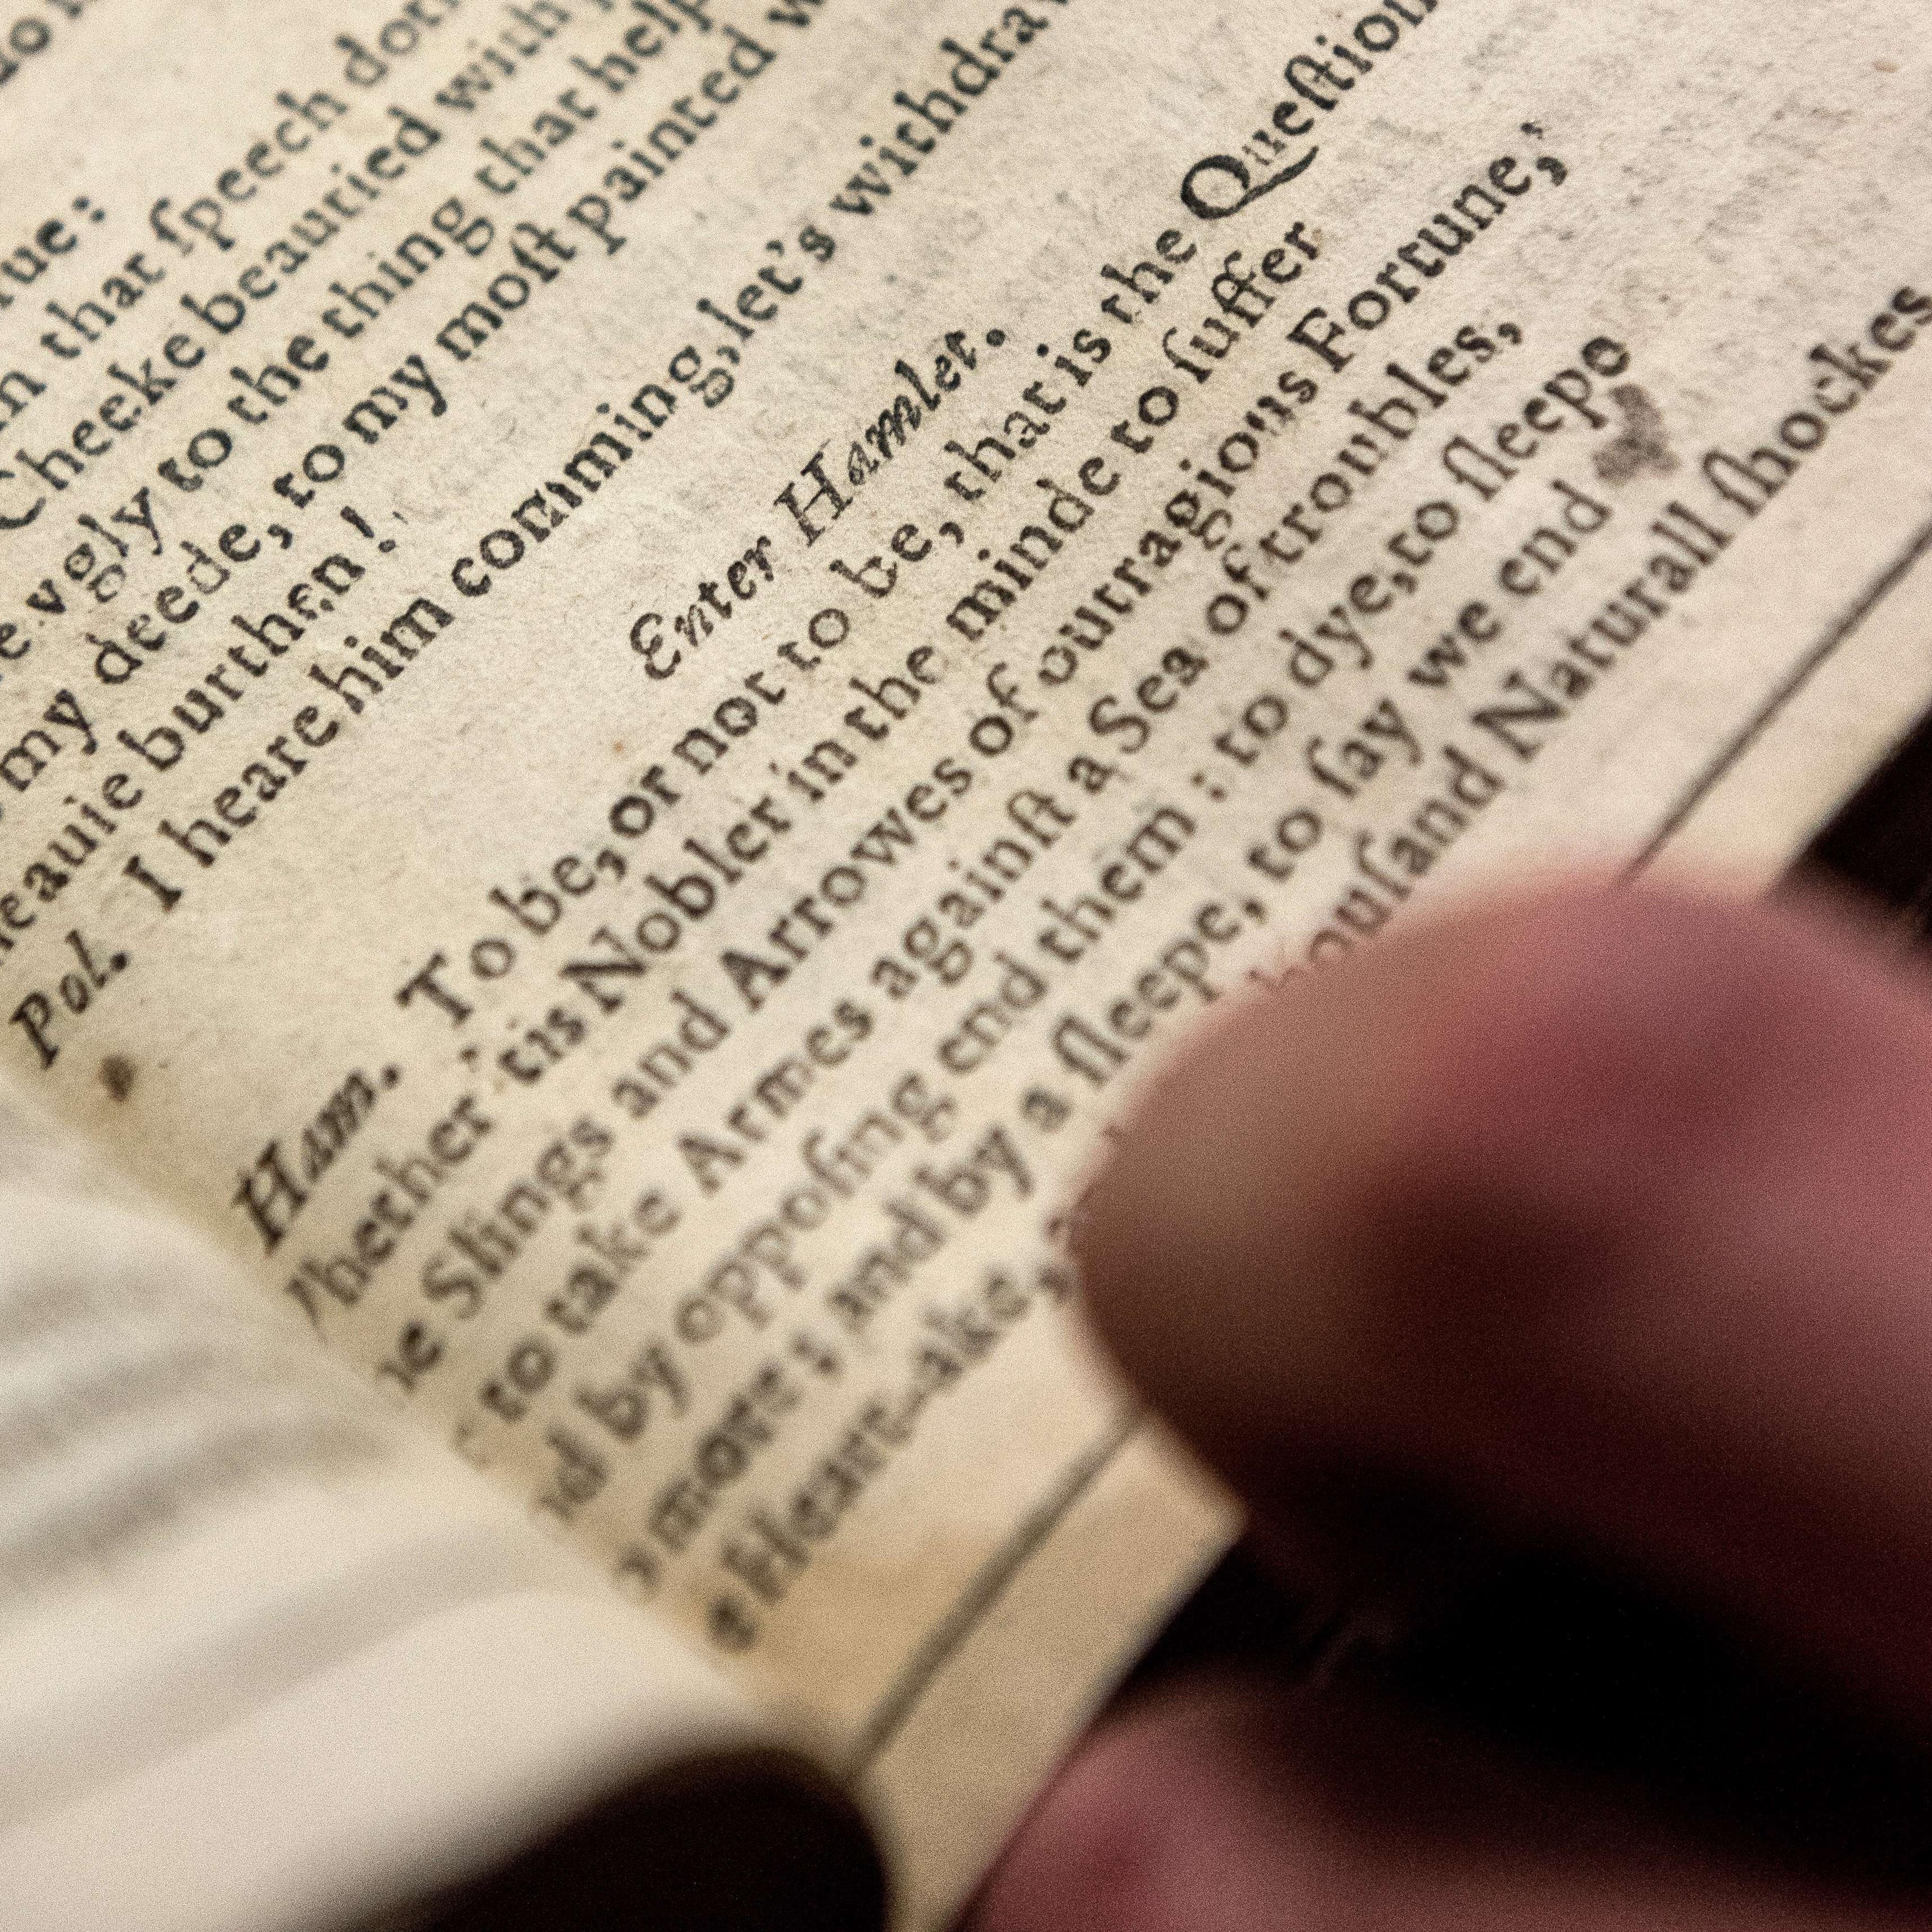 rue:
n that ſpeech
Cheeke beautied with
vgly to the thing that
my deede, to my moſt painted
eauie burthen!
Pol. I heare him comming, let's withdra
Enter Hamlet.
Ham. To be, or not to be, that is the Queſtion
hether 'tis Nobler in the minde to ſuffer
e Slings and Arrowes of outragious Fortune,
to take Armes againſt a Sea of troubles,
d by oppoſing end them: to dye, to ſleepe
more; and by a ſleepe, to ſay we end
e Heart-ake, houſand Naturall ſhockes